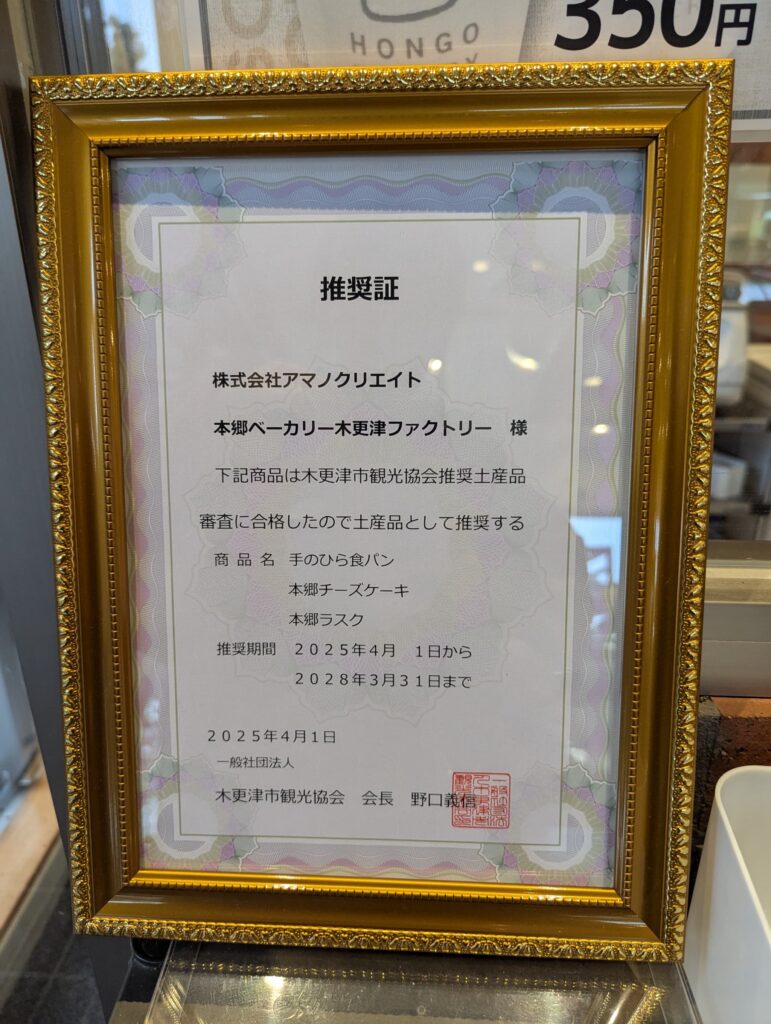 HONGO
350円
推奨証
株式会社アマノクリエイト
本郷ベーカリー木更津ファクトリー 様
下記商品は木更津市観光協会推奨土産品
審査に合格したので土産品として推奨する
商品名 手のひら食パン
本郷チーズケーキ
本郷ラスク
推奨期間 2025年4月 1日から
2028年3月31日まで
2025年4月1日
一般社団法人
木更津市観光協会 会長 野口義信